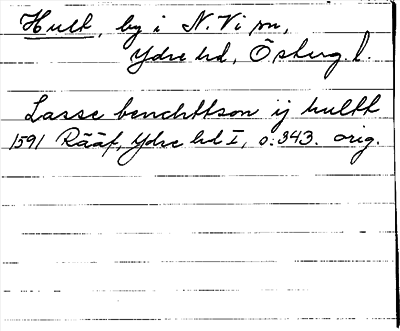 Hult, by i N. Vi sn,
Ydre hd, Österg. l.
Lasse benchttson ij hultt
1591 Rääf, Ydre hd I, s. 343. orig.